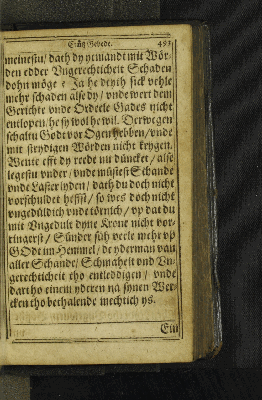 Crütz Gebede. 493
meinestu/ dath dy yemandt mit Wör-
den edder Vngerechticheit Schaden
dohn möge? Ja he deyth sick vehle
mehr schaden alse dy/ vnde wert dem
Gerichte vnde Ordeele Gades nicht
entlopen/ he sy wol he wil. Derwegen
schaltu Godt vor Ogen hebben/ vnde
mit strydigen Wörden nicht krygen.
Wente efft dy reede nu düncket/ alse
legestu vnder/ vnde müstest Schande
vnde Laster lyden/ dath du doch nicht
vorschuldet heffst/ so wes doch nicht
vngedüldich vnde törnich/ vp dat du
mit Vngedult dyne Krone nicht vor-
ringerst/ Sünder süh veele mehr vp
GOdt im Hemmel/ de yderman van
aller Schande/ Schmaheit vnd Vn-
gerechticheit tho entleddigen/ vnde
dartho einem yderen na synen Wer-
cken tho bethalende mechtich ys.
Ein